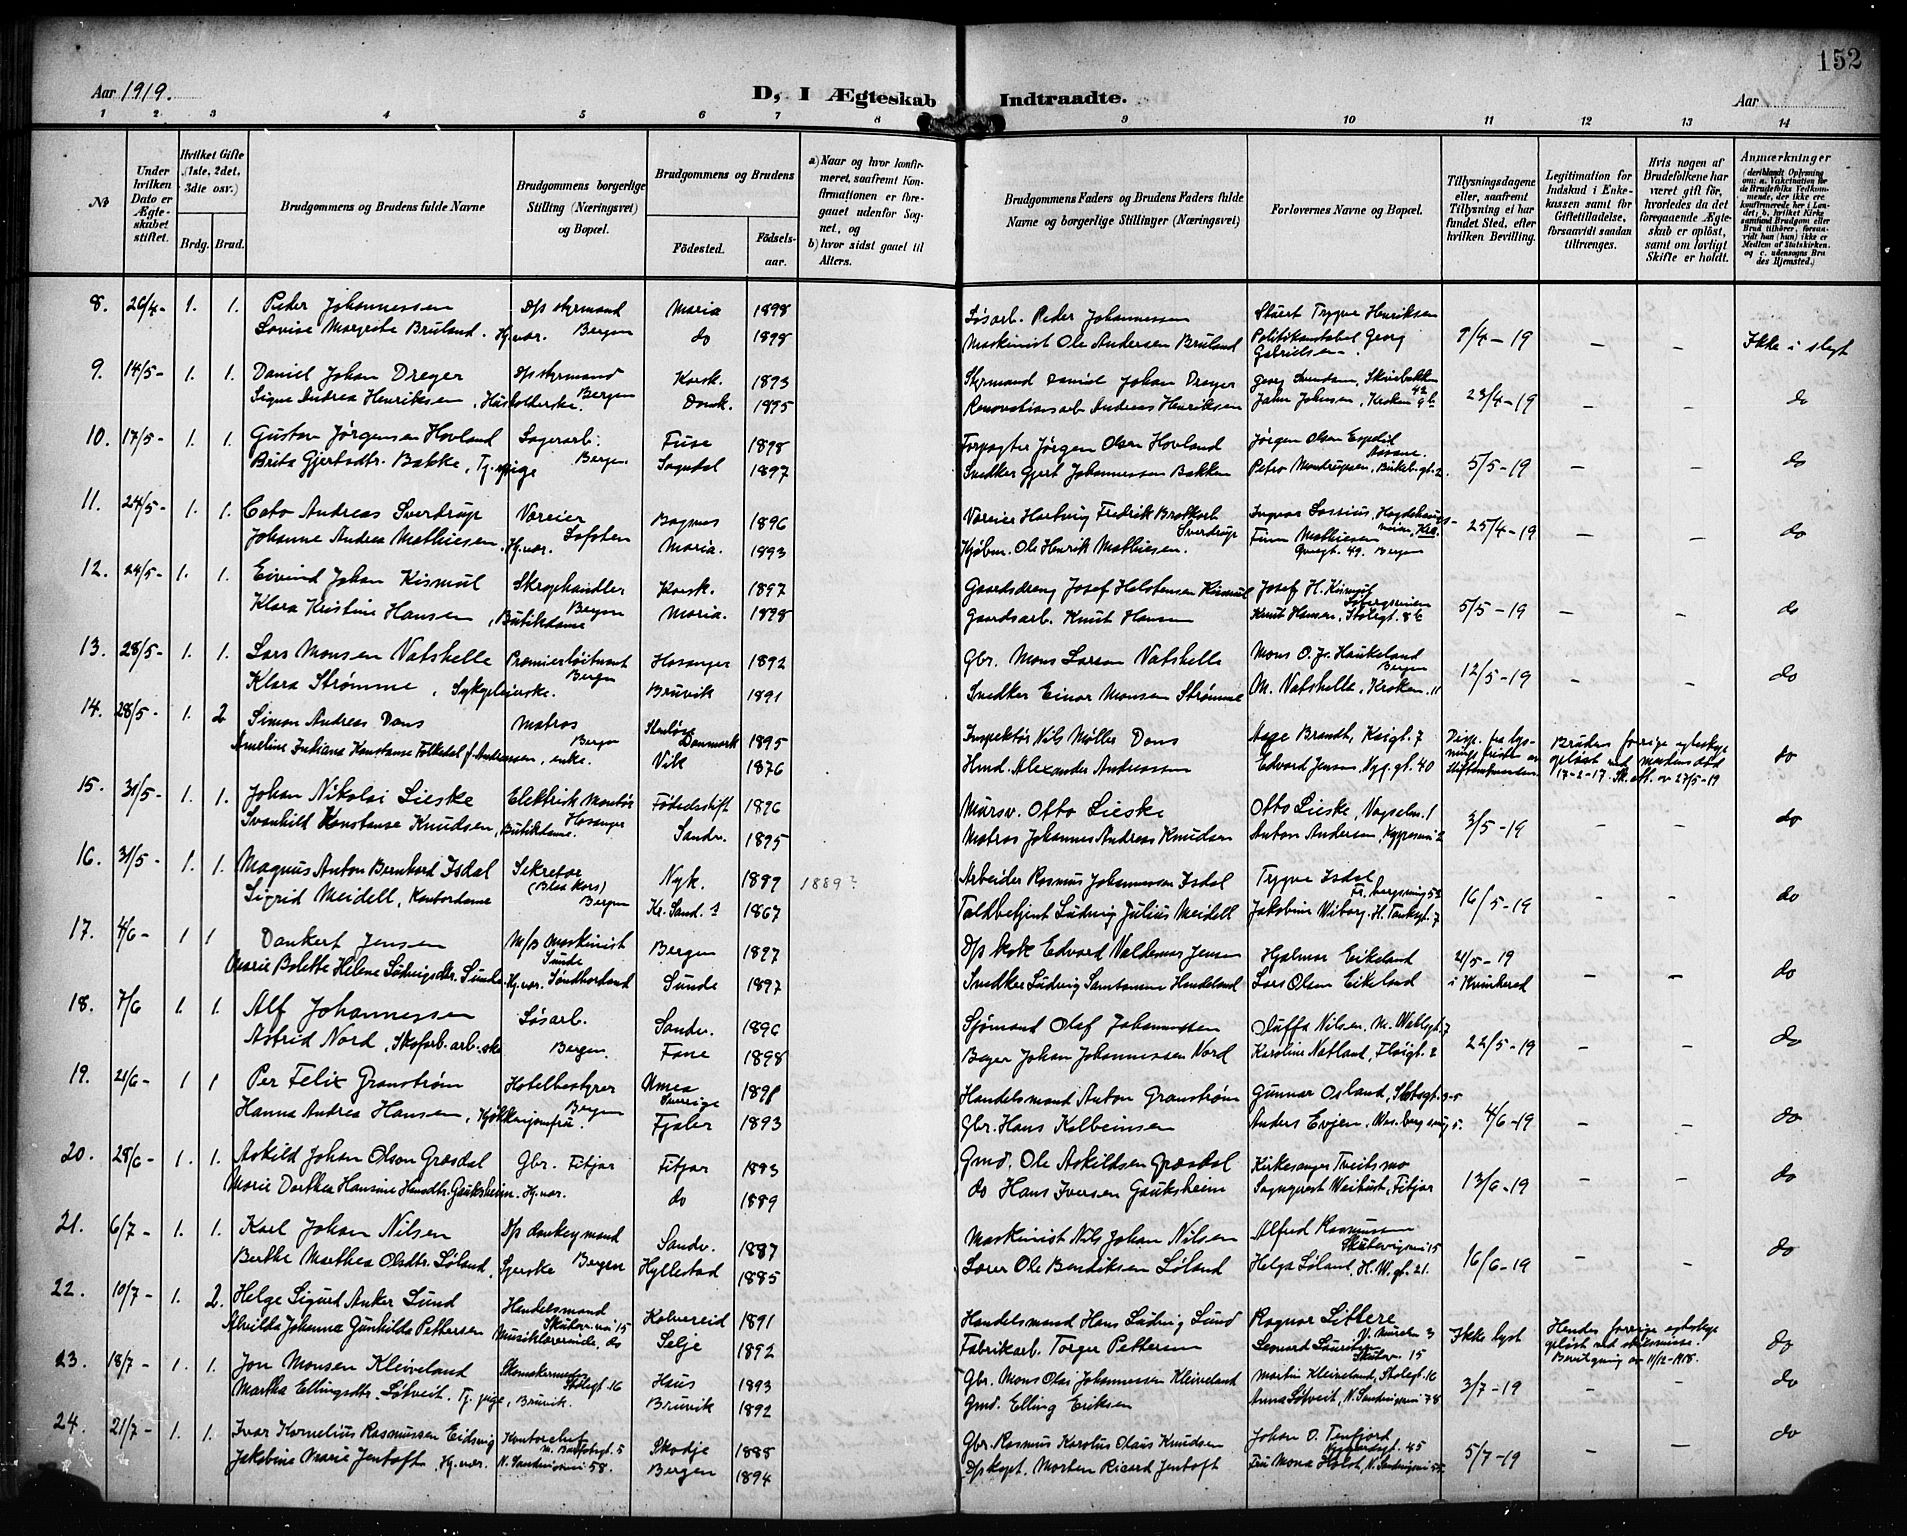 152
Aar 1919.
D, I Ægteskab Indtraadte.
Aar
1 2 3 4 5 6 7 8 9 10 11 12 13 14
No
Under hvilken Dato er Ægteskabet stiftet.
Hvilket Gifte (1ste, 2det, 3die osv.)
Brdg. Brud.
Brudgommens og Brudens fulde Navne
Brudgommens borgerlige Stilling (Næringsvei) og Bopæl.
Brudgommens og Brudens
Fødested. Fødselsaar.
a) Naar og hvor konfirmeret, saafremt Konfirmationen er foregaaet udenfor Sognet, og
b) hvor sidst gaaet til Alters.
Brudgommens Faders og Brudens Faders fulde Navne og borgerlige Stillinger (Næringsvei)
Forlovernes Navne og Bopæl.
Tillysningsdagene eller, saafremt Tillysning ei har fundet Sted, efter hvilken Bevilling.
Legitimation for Indskud i Enkekassen samt for Giftetilladelse, forsaavidt saadan tiltrænges.
Hvis nogen af Brudefolkene har været gift før, hvorledes da det foregaaende Ægteskab er opløst, samt om lovligt Skifte er holdt.
Anmærkninger (deriblandt Oplysning om: a. Vaccination for de Brudefolks Vedkommende, der ikke ere konfirmerede her i Landet; b. hvilket Kirkesamfund Brudgom eller Brud tilhører, forsaavidt han (hun) ikke er Medlem af Statskirken. og c. udensogns Brudes Hjemsted.)
8. 26/4 - 1. 1. Peder Johannessen D/s styrmand Maria 1898 Løsarb. Peder Johannessen Stuert Trygve Henriksen
Lovise Margrete Bruland. Hj.vær. Bergen do 1898 Maskinist Ole Andersen Bruland Politikonstabel Georg Gabrielsen. 9/4 - 19 – – Ikke i slegt
9. 14/5 - 1. 1. Daniel Johan Dreyer D/s styrmand Korsk. 1893 Styrmand Daniel Johan Dreyer
Signe Andrea Henriksen, Husholderske. Bergen Domk. 1895 Renovationsarb. Andreas Henriksen John Johnsen, Kroken 23/4 - 19 – – do
10. 17/5 - 1. 1. Gustav Jørgensen Hovland Lagerarb. Fuse 1898 Forpagter Jørgen Olsen Hovland Jørgen Olsen Espelid Aasane.
Brita Gjertsdtr. Bakke, Tj.pige Bergen Sogndal 1897 Snedker Gjert Johannessen Bakken Petra Monsrupsen, Birkeb.gt. 2. 5/5 - 19 – – do
11. 24/5 - 1. 1. Cato Andreas Sverdrup Væreier Bognes 1896 Væreier Hartvig Fredrik Sverdrup
Johanne Andrea Mathiesen, Hj.vær. Lofoten Maria. 1893 Kjøbm. Ole Henrik Mathiesen. Finn Mathiesen 49. Bergen 25/4 - 19 – – do
12. 24/5 - 1. 1. Eivind Johan Kismul Skræphandler Korsk. 1897 Gaardsdreng Josef Halstensen Kismul Josef H. Kismul
Klara Kristine Hansen, Butikdame Bergen Maria. 1898 Gaardsarb. Knut Hansen Knut Hansen, Stølegt. 8b 5/5 - 19 – – do
13. 28/5 - 1. 1. Lars Monsen Vatshelle Premierløitnant Hosanger 1892 Gbr. Mons Larsen Vatshelle Mons O. Jr. Haukeland Bergen
Klara Strømme, Sykepleierske. Bergen Bruvik 1891 Snedker Einar Monsen Strømme M. Vatshelle, Kroken 11 12/5 - 19 – – do
14. 28/5 - 1. 2 Simon Andreas Dons Matros Stenløse Danmark 1895 Inspektør Nils Møller Dons Aage Brandt, Kaigt. 7
Ameline Indiana Konstanse Folkedal f. Andreassen, enke. Bergen Vik 1876 Hmd. Alexander Andreassen Edvard Jensen, Nyg.gt. 40 Disp. fra lysnings frist av Stiftamtmanden Brudens forrige egteskap opløst ved mandens død 17-2-17. Sk.att. av 27/5-19 do
15. 31/5 - 1. 1. Johan Nikolai Lieske Elektrisk Montør Fødselsstift 1896 Mursv. Otto Lieske Otto Lieske, 1
Svanhild Konstanse Knudsen, Butikdame. Hosanger Sandv. 1895 Matros Johannes Andreas Knudsen Anton Andersen, 2 3/5 - 19 – – do
16. 31/5 - 1. 1. Magnus Anton Bernhard Isdal Sekretær (Blaa Kors) Nyk. 1899 1889? Arbeider Rasmus Johannessen Isdal Trygve Isdal
Sigrid Meidell, Kontordame Bergen Kr.Sand. S 1867 Toldbetjent Ludvig Julius Meidell Jakobine Wiborg. H. Tanksgt. 7 16/5 - 19 – – do
17. 4/6 - 1 1 Dankert Jensen M/B Maskinist Bergen 1897 D/s kok Edvard Valdemar Jensen Hjalmar Eikeland 21/5 - 19
Marie Bolette Helene Ludvigsdtr. Sunde Hj.vær. Sunde Søndhordland Sunde 1897 Snedker Ludvig Handeland Lars Olsen Eikeland i Kvinherad – – do
18. 7/6 1. 1. Alf Johannessen Løsarb. Sandv. 1896 Sjømand Olaf Johannessen Nilsen, 7
Astrid Nord, Skofarb.arb.ske Bergen. Fane 1898 Bager Johan Johannessen Nord Karoline Natland, Fløigt. 2 22/5 - 19 – – do
19. 21/6 - 1 1 Per Felix Granstrøm Hotelbestyrer Umea Sverige 1898 Handelsmand Anton Granstrøm Gunnar Osland,
Hanna Andrea Hansen, Kjøkkenjomfru. Bergen Fjaler 1893 Gbr. Hans Kolbeinsen Anders Evjen, 5. 4/6 - 19 – – do
20. 28/6 - 1. 1. Askild Johan Olson Græsdal Gbr. Fitjar Fitjar 1893 Gmd. Ole Askildsen Græsdal Kirkesanger Tveitsmo
Marie Dorthea Hansine Hansdtr. Gauksheim. Hj.vær. do 1889 do Hans Iversen Gauksheim Sogneprest Fitjar 13/6 - 19 – – do
21. 6/7 - 1. 1. Karl Johan Nilsen D/s donkeymand Sandv. 1887 Maskinist Nils Johan Nilsen Alfred Rasmussen Skuteviksvei 15
Berthe Marthea Olsdtr. Løland, Syerske Bergen Hyllestad 1885 Lærer Ole Bendiksen Løland Helga Løland, H.W.gt. 21. 16/6 - 19 – – do
22. 10/7 - 1. 2. Helge Sigurd Anker Lund Handelsmand Skutev.vei 15 Kolvereid 1891 Handelsmand Hans Ludvig Lund Ragnar Littere
Alvilda Johanna Gunhilda Pettersen Musiklærerinde, do Selje 1892 Fabrikarb. Torger Pettersen Leonard Lauritzen Skutev. 15 Ikke lyst Hendes forrige egteskap opløst ved skilsmisse. Bevilgning av 11/12-1918. do
23. 18/7 - 1. 1. Jon Monsen Kleiveland Skomakermester Stølegt. 16 Haus 1893 Gbr. Mons Olai Johannessen Kleiveland Martin Kleiveland, Stølegt. 16
Martha Ellingsdtr. Løtveit. Tj. pige, Bruvik. Bruvik 1892 Gmd. Elling Eriksen Anna Løtveit, N. Sandviksvei 78 3/7 - 19 – – do
24. 21/7 - 1. 1. Ivar Kornelius Rasmussen Eidsvig Kontorchef 5 Skodje 1888 Gbr. Rasmus Karolus Olaus Knudsen Johan O. Tenfjord 45
Jakobine Marie Jentoft, Hj.vær. N. Sandviksvei 58. Bergen 1894 D/s kapt. Morten Ricard Jentoft Fru Mona Holst, N. Sandviksvei 5/7 - 19 – – do